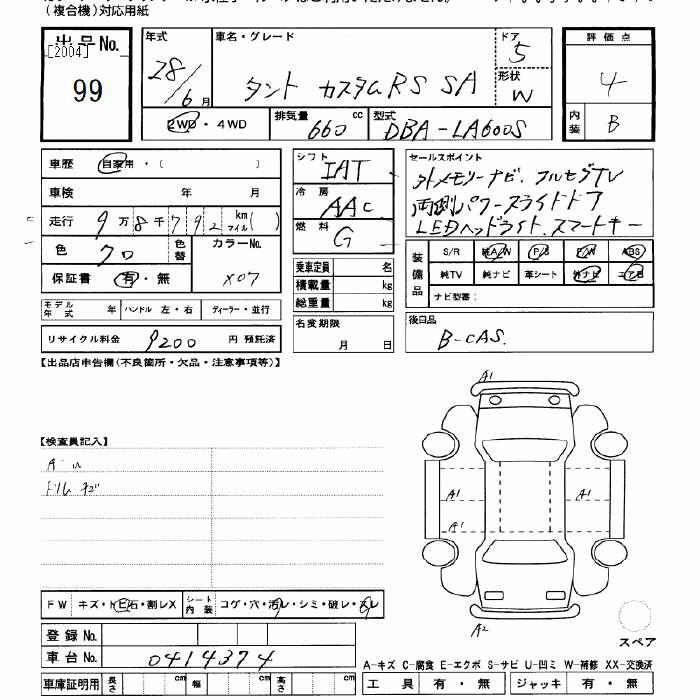 (複合機)対応用紙
出品No. [2004] 99
年式 28/6月
車名・グレード タント カスタムRS SA
ドア 5
形状 W
2WD・4WD
排気量 660 cc
型式 DBA-LA600S
評価点 4
内装 B
車歴 自家用・( )
車検 年 月
走行 9万8千792 km マイル( )
色 クロ 色替 カラーNo. X07
保証書 有・無
モデル年式 年 ハンドル 左・右 ディーラー・並行
リサイクル料金 9200 円 預託済
シフト IAT
冷房 AAC
燃料 G
乗車定員 名
積載量 kg
総重量 kg
名変期限 月 日
セールスポイント
外メモリーナビ.フルセグTV
両側パワースライドドア
LEDヘッドライト.スマートキー
装備品 S/R 純A/W P/S P/W ABS
純TV 純ナビ 革シート 外ナビ エアB
ナビ型番:
後日品
B-CAS.
【出品店申告欄(不良箇所・欠品・注意事項等)】
【検査員記入】
A1
A1 A1
A1
A2
FW キズ・トビ石・割レX シート内装 コゲ・穴・汚レ・シミ・破レ・スレ
登録No.
車台No. 0414374
スペア
A-キズ C-腐食 E-エクボ S-サビ U-凹ミ W-補修 XX-交換済
車庫証明用 長さ cm 幅 cm 高さ cm
工具 有・無 ジャッキ 有・無